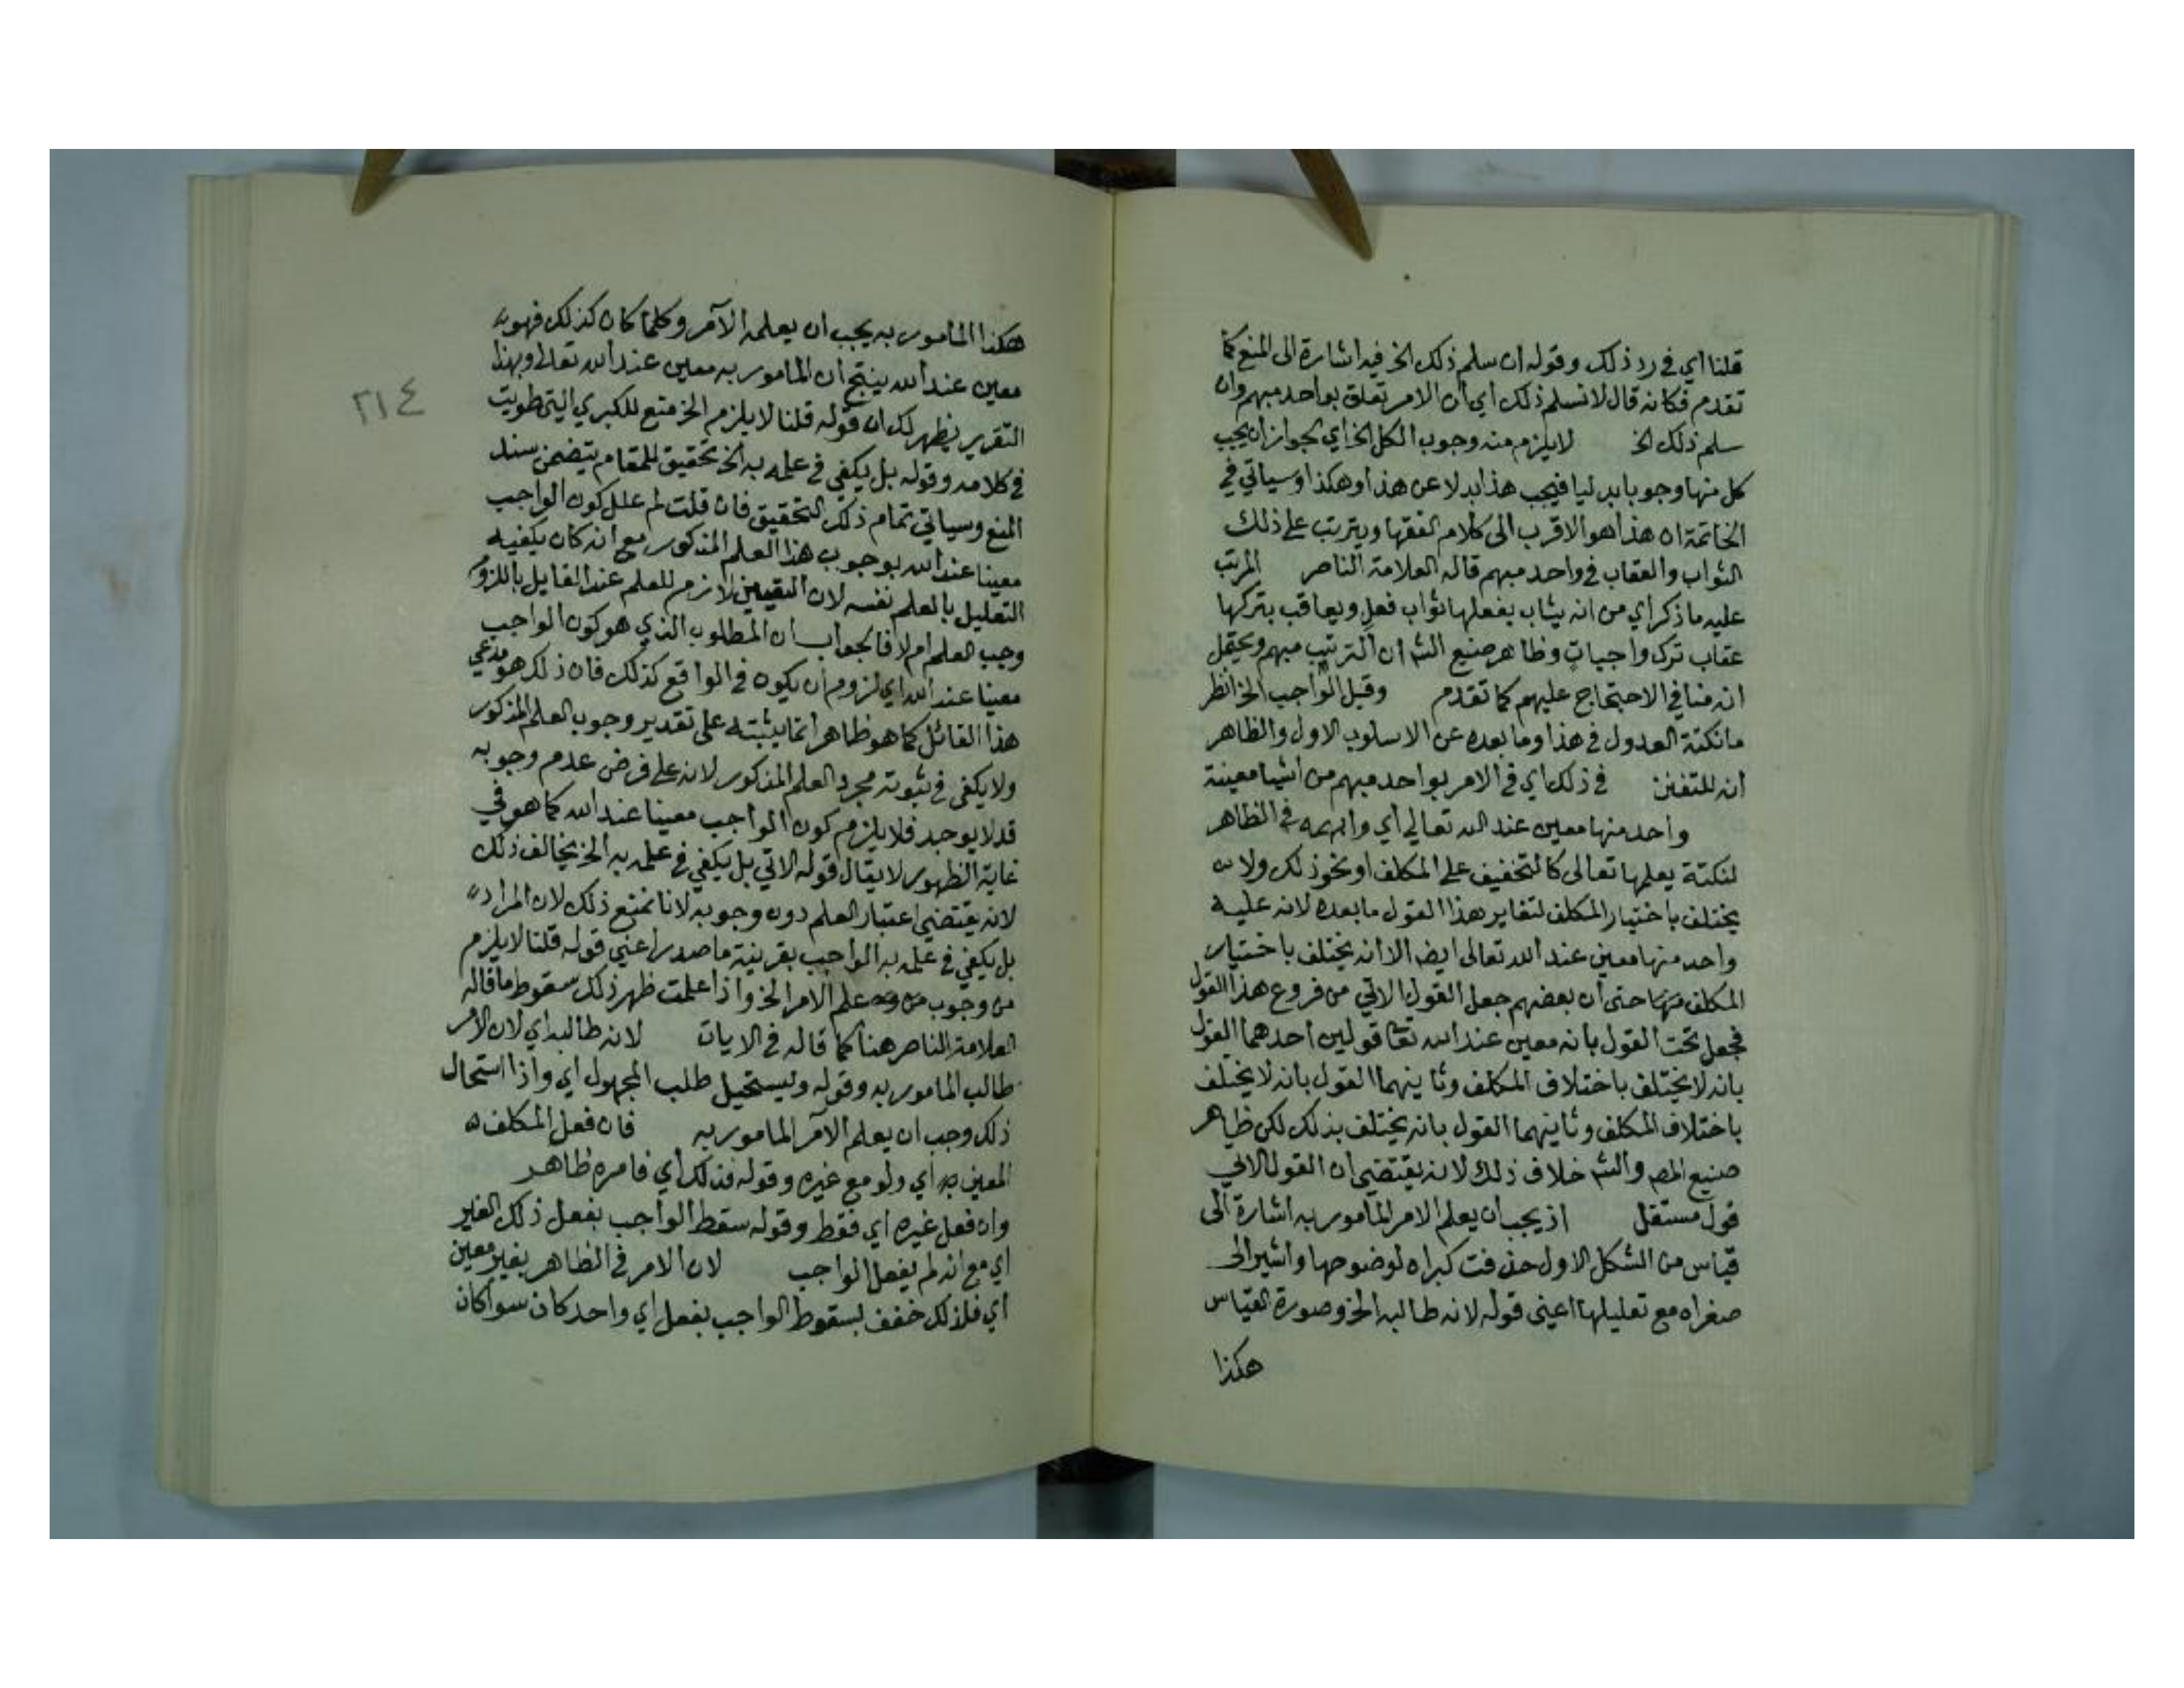 قلنا اي في رد ذلك وقوله ان سلم ذلك الخ فيه اشارة الى المنع كما
تقدم فكانه قال لا نسلم ذلك اي ان الامر تعلق بواحد مبهم وان
سلم ذلك الخ لا يلزم منه وجوب الكل الخ اي لجواز ان يجب
كل منها وجوبا بدليا فيجب هذا بدلا عن هذا وهكذا وسياتي في
الخاتمة ان هذا هو الاقرب الى كلام الفقها ويترتب على ذلك
الثواب والعقاب في واحد مبهم قاله العلامة الناصر المرتب
عليه ما ذكر اي من انه يثاب بفعلها ثواب فعل ويعاقب بتركها
عقاب ترك واجبات وظاهر صنيع الشم ان الترتيب مبهم ويحتمل
انه منافي الاحتجاج عليهم كما تقدم وقيل الواجب الخ انظر
ما نكتة العدول في هذا وما بعده عن الاسلوب الاول والظاهر
انه للتفنن في ذلك اي في الامر بواحد مبهم من اشيا معينة
واحد منها معين عند الله تعالى اي وابهمه في الظاهر
لنكتة يعلمها تعالى كالتخفيف على المكلف او نحو ذلك ولا
يختلف باختيار المكلف لتغاير هذا القول ما بعده لانه عليه
واحد منها معين عند الله تعالى ايضا الا انه يختلف باختيار
المكلف حتى ان بعضهم جعل القول الاتي من فروع هذا القول
فجعل تحت القول بانه معين عند الله تعا قولين احدهما القول
بانه لا يختلف باختلاف المكلف وثانيهما القول بانه لا يختلف
باختلاف المكلف وثانيهما القول بانه يختلف بذلك لكن ظاهر
صنيع المص والشم خلاف ذلك لانه يقتضي ان القول الاتي
قول مستقل اذ يجب ان يعلم الامر المامور به اشارة الى
قياس من الشكل الاول حذفت كبراه لوضوحها واشير الى
صغراه مع تعليلها اعني قوله لانه طالبه الخ وصورة القياس
هكذا
٢١٤
هكذا المامور به يجب ان يعلمه الآمر وكلما كان كذلك فهو
معين عند الله ينتج ان المامور به معين عند الله تعالى وبهذا
التقرير يظهر لك ان قوله قلنا لا يلزم الخ منع للكبري التي طويت
في كلامه وقوله بل يكفي في علمه به الخ تحقيق للمقام يتضمن سند
المنع وسياتي تمام ذلك التحقيق فان قلت لم علل كون الواجب
معينا عند الله بوجوب هذا العلم المذكور مع انه كان يكفيه
التعليل بالعلم نفسه لان التعيين لازم للعلم عند القايل باللزوم
وجب العلم ام لا فالجواب ان المطلوب الذي هو كون الواجب
معينا عند الله اي لزوم ان يكون في الواقع كذلك فان ذلك هو مدعي
هذا القائل كما هو ظاهر انما يثبته على تقدير وجوب العلم المذكور
ولا يكفي في ثبوته مجرد العلم المذكور لانه على فرض عدم وجوبه
قد لا يوجد فلا يلزم كون الواجب معينا عند الله كما هو في
غاية الظهور لا يقال قوله الاتي بل يكفي في علمه به الخ يخالف ذلك
لانه يقتضي اعتبار العلم دون وجوبه لانا نمنع ذلك لان المراد
بل يكفي في علمه به الواجب بقرينة ما صدر اعني قوله قلنا لا يلزم
من وجوب علم الامر الخ واذا علمت ظهر ذلك سقوط ما قاله
العلامة الناصر هنا كما قاله في الايات لانه طالبه اي لان الآمر
طالب المامور به وقوله ويستحيل طلب المجهول اي واذا استحال
ذلك وجب ان يعلم الآمر المامور به فان فعل المكلف
المعين اي ولو مع غيره وقوله فذلك اي فامره ظاهر
وان فعل غيره اي فقط وقوله سقط الواجب بفعل ذلك الغير
اي مع انه لم يفعل الواجب لان الامر في الظاهر بغير معين
اي فلذلك خفف بسقوط الواجب بفعل اي واحد كان سوا كان